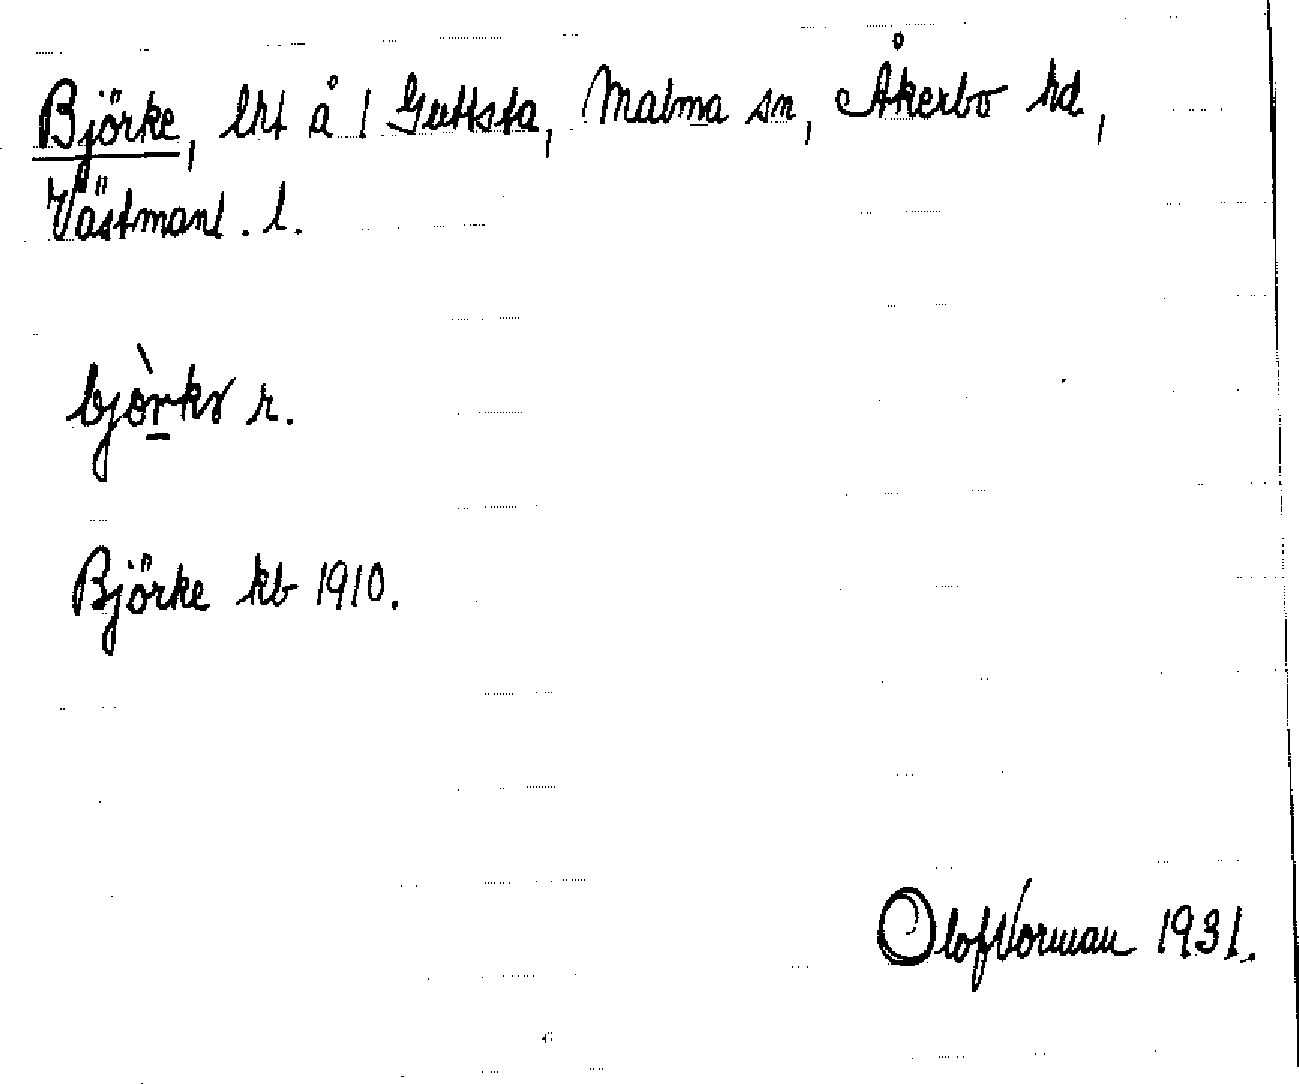 Björke, lht å 1 Guttsta, Malma sn, Åkerbo hd,
Västmanl. l.
björkɤ r.
Björke kb 1910.
Olof Norman 1931.